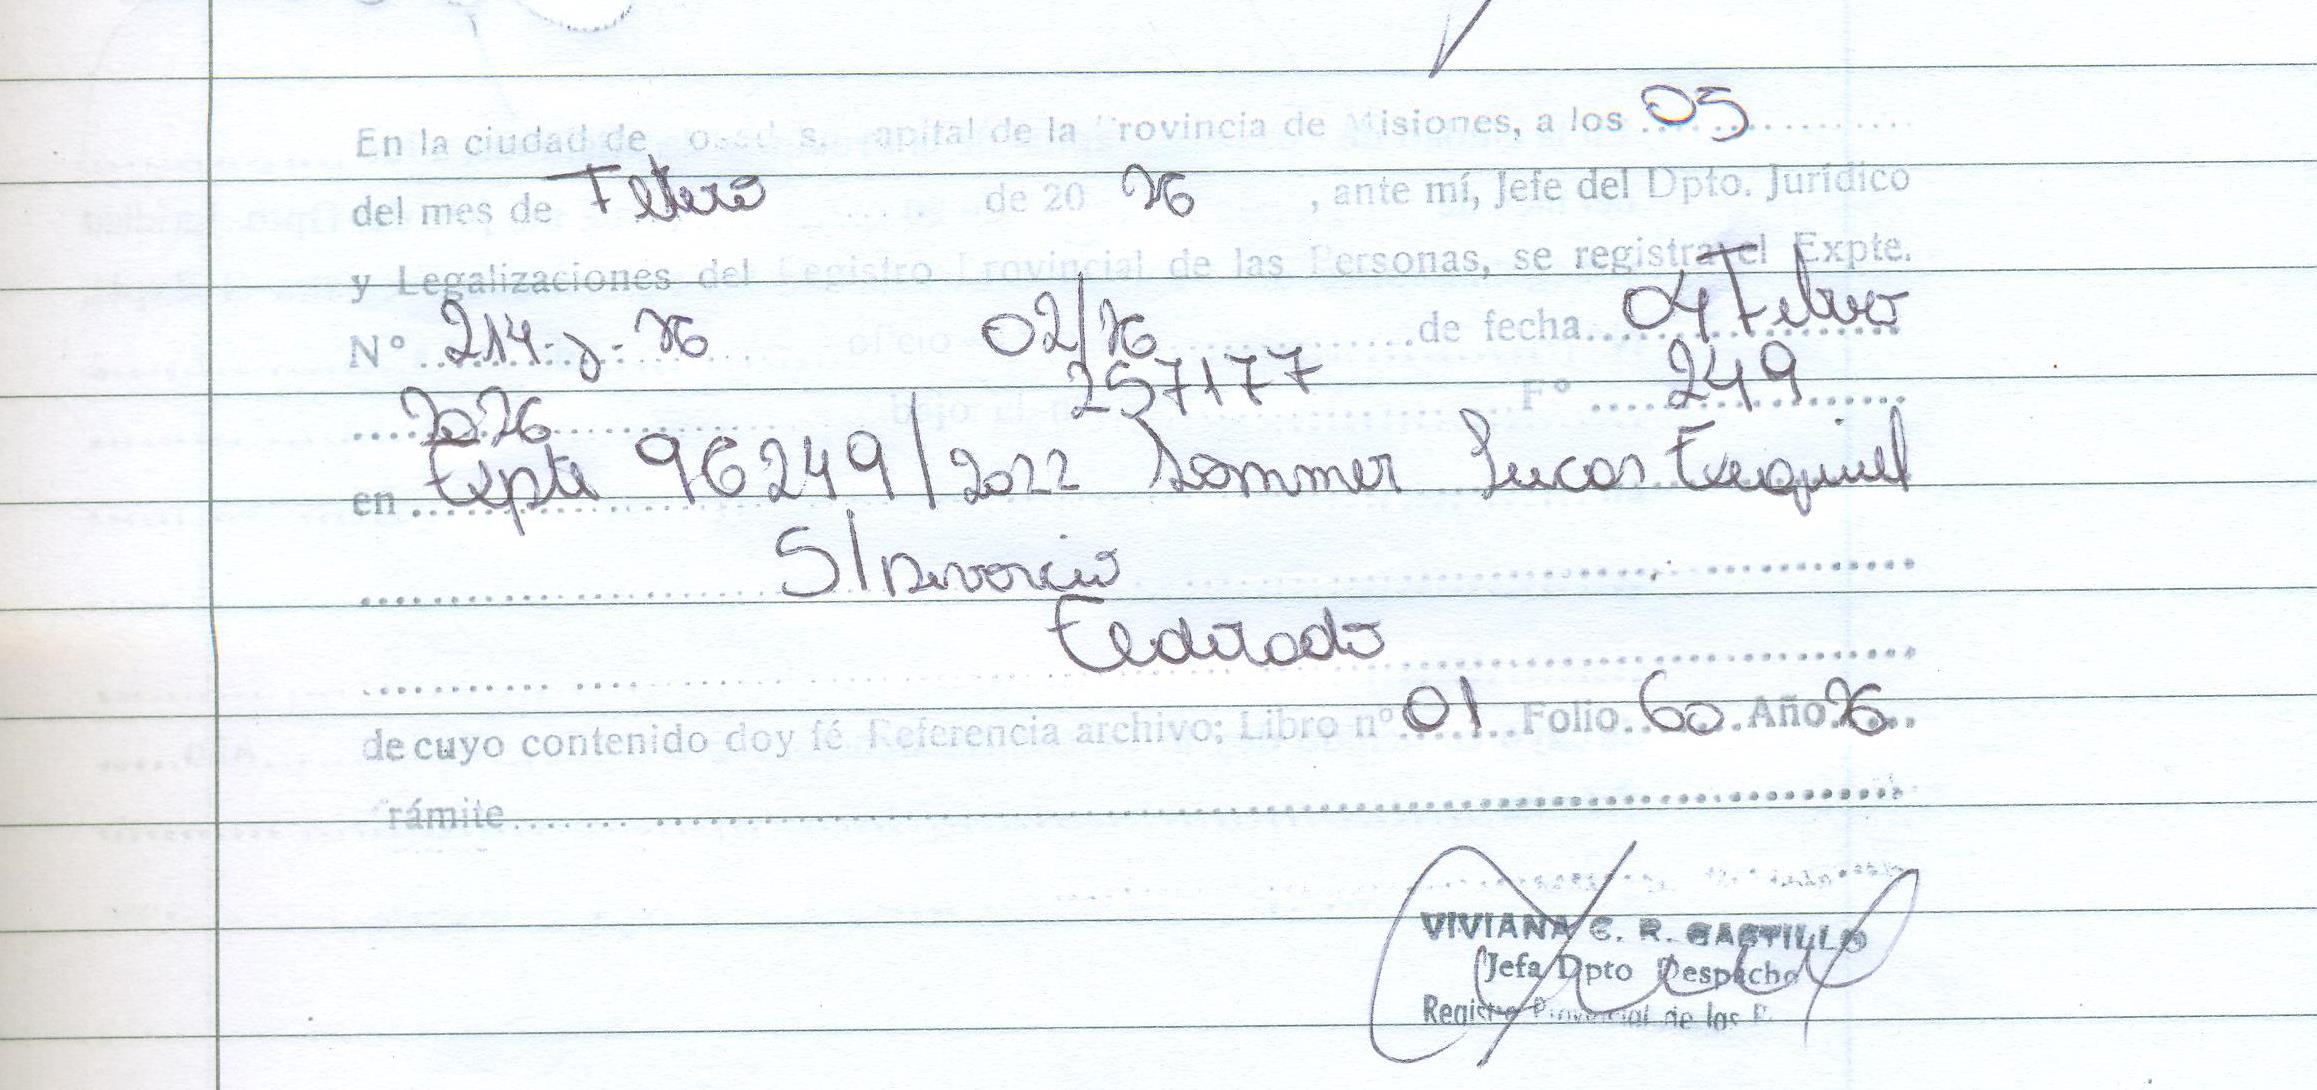 En la ciudad de osad s. apital de la Provincia de Misiones, a los 05
del mes de Febrero de 20 26, ante mí, Jefe del Dpto. Jurídico
y Legalizaciones del Registro Provincial de las Personas, se registra el Expte.
N° 214-J-26 oficio 02/26 de fecha 04 Febrero
2026 bajo el n° 257177 F° 249
en Expte 96249/2022 Sommer Lucas Ezequiel
S/Divorcio
Eldorado
de cuyo contenido doy fé Referencia archivo: Libro n° 01 Folio 60 Año 26
rámite
VIVIANA C. R. CASTILLO
Jefa Dpto Despacho
Registro Provincial de las P.